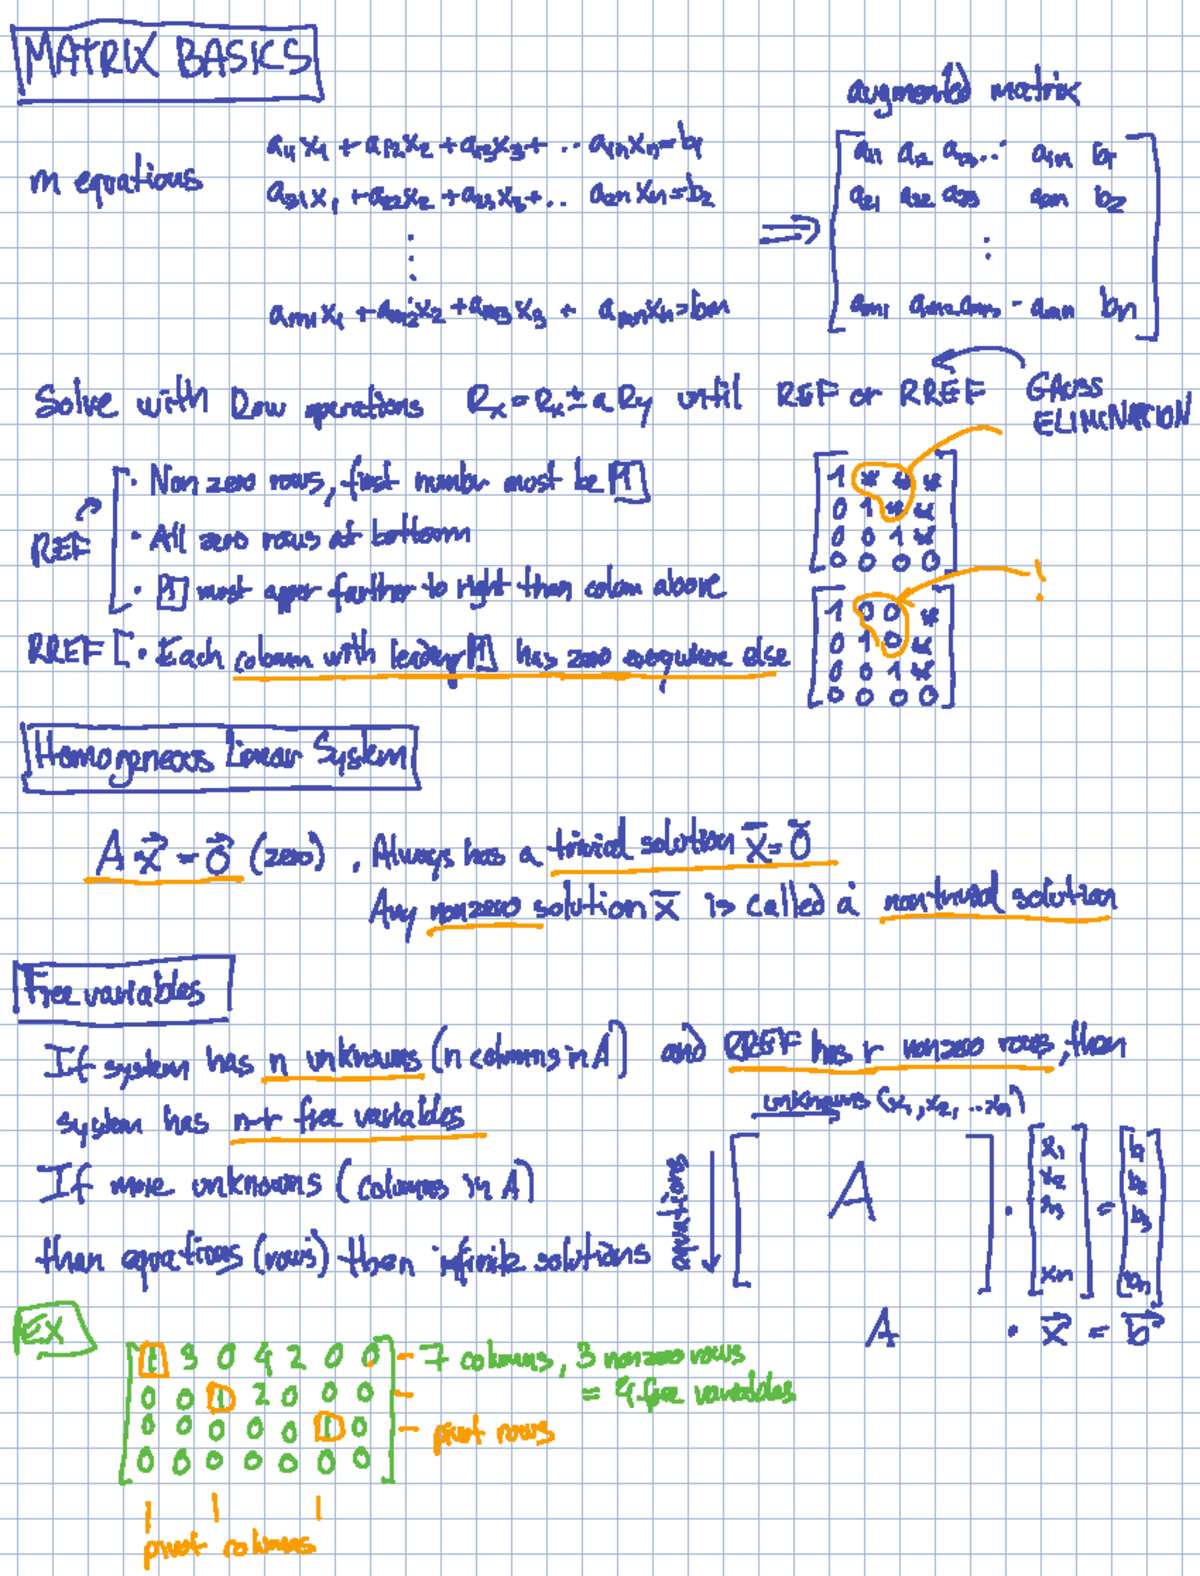 MATRIX BASICS
augmented matrix
m equations
a11 x1 + a12x2 + a13x3 + .. a1nxn=b1
a21x1 + a22x2 + a23x3+.. a2n xn=b2
⋮
am1x1 + am2x2 + am3x3 + amnxn=bm
⇒
a11 a12 a13... a1n b1
a21 a22 a23 a2n b2
⋮
am1 am2 am3 - amn bn
Solve with Row operations Rx = Rx ± a Ry until REF or RREF
GAUSS
ELIMINATION
REF
· Non zero rows, first number must be 1
· All zero rows at bottom
· 1 must apper farther to right than colom above
1 * * *
0 1 * *
0 0 1 *
0 0 0 0
!
RREF [ · Each column with leading 1 has zero everywhere else
1 0 0 *
0 1 0 *
0 0 1 *
0 0 0 0
Homogeneous Linear System
A x⃗ = 0⃗ (zero) , Always has a trivial solution x̄ = 0̄
Any nonzero solution x̄ is called a nontrivial solution
Free variables
If system has n unknowns (n columns in A) and RREF has r nonzero rows, then
system has n-r free variables
If more unknowns (columns in A)
than equations (rows) then infinite solutions
unknowns (x1, x2, ..xn)
equations
A · x1 x2 x3 xn = b1 b2 b3 bn
A · x⃗ = b⃗
EX
1 3 0 4 2 0 0 - 7 columns, 3 nonzero rows
= 4 free variables
0 0 1 2 0 0 0 -
0 0 0 0 0 1 0 - pivot rows
0 0 0 0 0 0 0
pivot columns